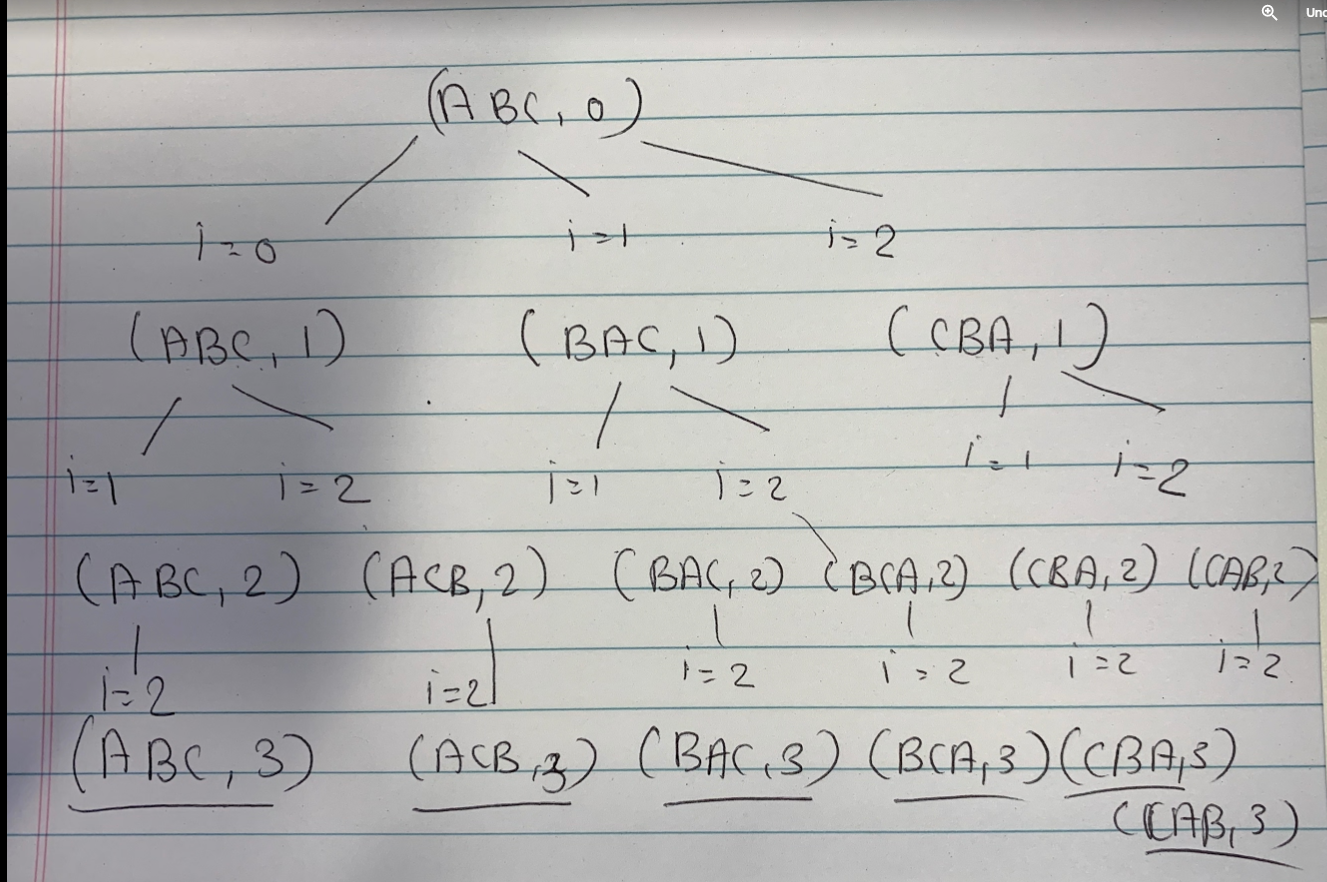 Und
(ABC, 0)
i=0 i=1 i=2
(ABC, 1) (BAC, 1) (CBA, 1)
i=1 i=2 i=1 i=2 i=1 i=2
(ABC, 2) (ACB, 2) (BAC, 2) (BCA, 2) (CBA, 2) (CAB, 2)
i=2 i=2 i=2 i=2 i=2 i=2
(ABC, 3) (ACB, 3) (BAC, 3) (BCA, 3) (CBA, 3)
(CAB, 3)